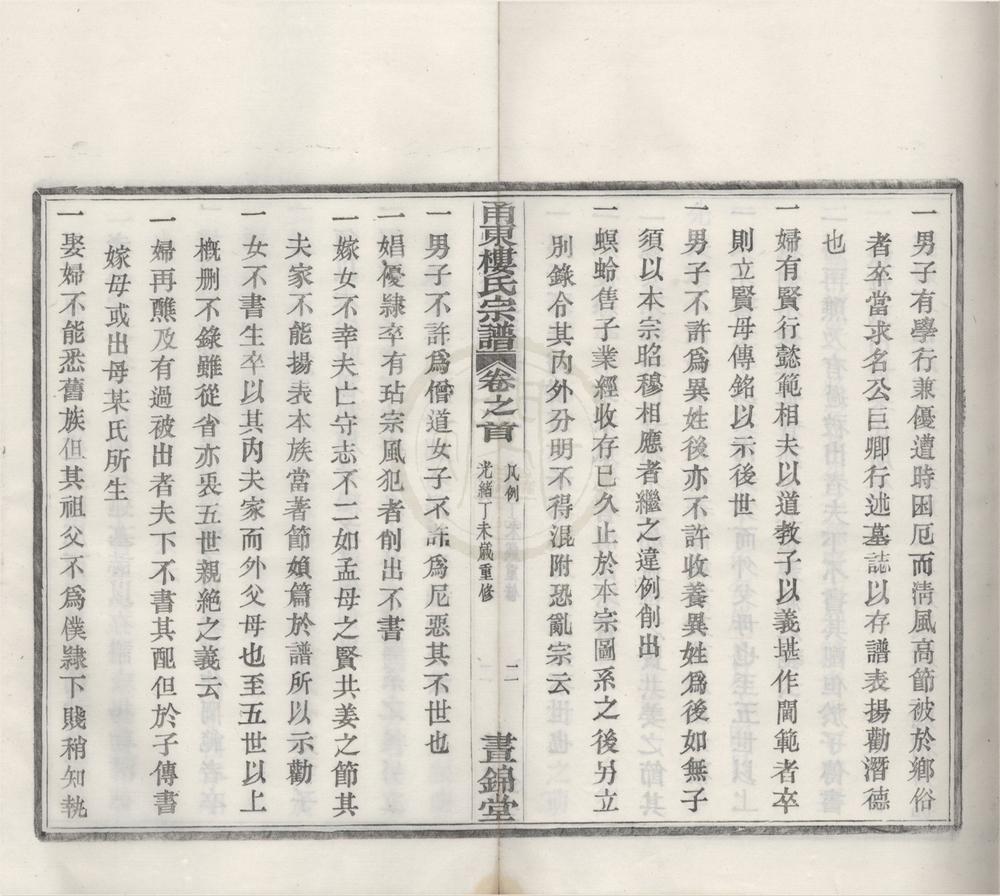 一男子有學行兼優遭時困厄而淸風高節被於鄉俗
者卒當求名公巨卿行述墓誌以存譜表揚勸潛德
也
一婦有賢行懿範相夫以道教子以義堪作閫範者卒
則立賢母傳銘以示後世
一男子不許爲異姓後亦不許收養異姓爲後如無子
須以本宗昭穆相應者繼之違例削出
一螟蛉售子業經收存已久止於本宗圖系之後另立
別錄令其內外分明不得混附恐亂宗云
甬東樓氏宗譜 卷之首 凡例 二 晝錦堂
光緒丁未歲重修
一男子不許爲僧道女子不許爲尼惡其不世也
一娼優隸卒有玷宗風犯者削出不書
一嫁女不幸夫亡守志不二如孟母之賢共姜之節其
夫家不能揚表本族當著節媍篇於譜所以示勸
一女不書生卒以其內夫家而外父母也至五世以上
概删不錄雖從省亦衺五世親絶之義云
一婦再醮及有過被出者夫下不書其配但於子傳書
嫁母或出母某氏所生
一娶婦不能悉舊族但其祖父不爲僕隸下賤稍知執